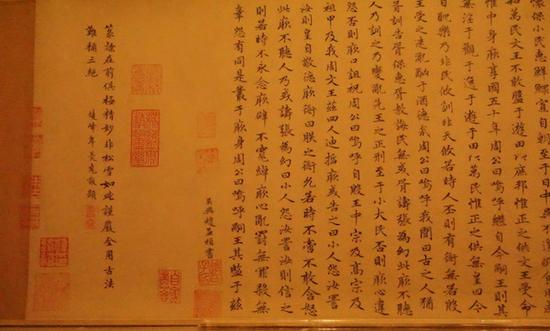 懷保小民惠鮮鰥寡自朝至于日中
和萬民文王不敢盤于遊田以庶邦惟正之供文王受命
惟中身厥享國五十年周公曰嗚呼繼自今嗣王則其
無淫于觀于逸于遊于田以萬民惟正之供無皇曰今
日耽樂乃非民攸訓非天攸若時人丕則有愆無若殷
王受之迷亂酗于酒德哉周公曰嗚呼我聞曰古之人猶
胥訓告胥保惠胥教誨民無或胥譸張為幻此厥不聽
人乃訓之乃變亂先王之正刑至于小大民否則厥心違
怨否則厥口詛祝周公曰嗚呼自殷王中宗及高宗及
祖甲及我周文王茲四人迪哲厥或告之曰小人怨汝詈
汝則皇自敬德厥愆曰朕之愆允若時不啻不敢含怒
此厥不聽人乃或譸張為幻曰小人怨汝詈汝則信之
則若時不永念厥辟不寬綽厥心亂罰無罪殺無
辜怨有同是叢于厥身周公曰嗚呼嗣王其監于茲
吳興趙孟頫書
篆隸在前俱極精妙非松雪如此謹嚴全用古法
難稱三絕
敬題